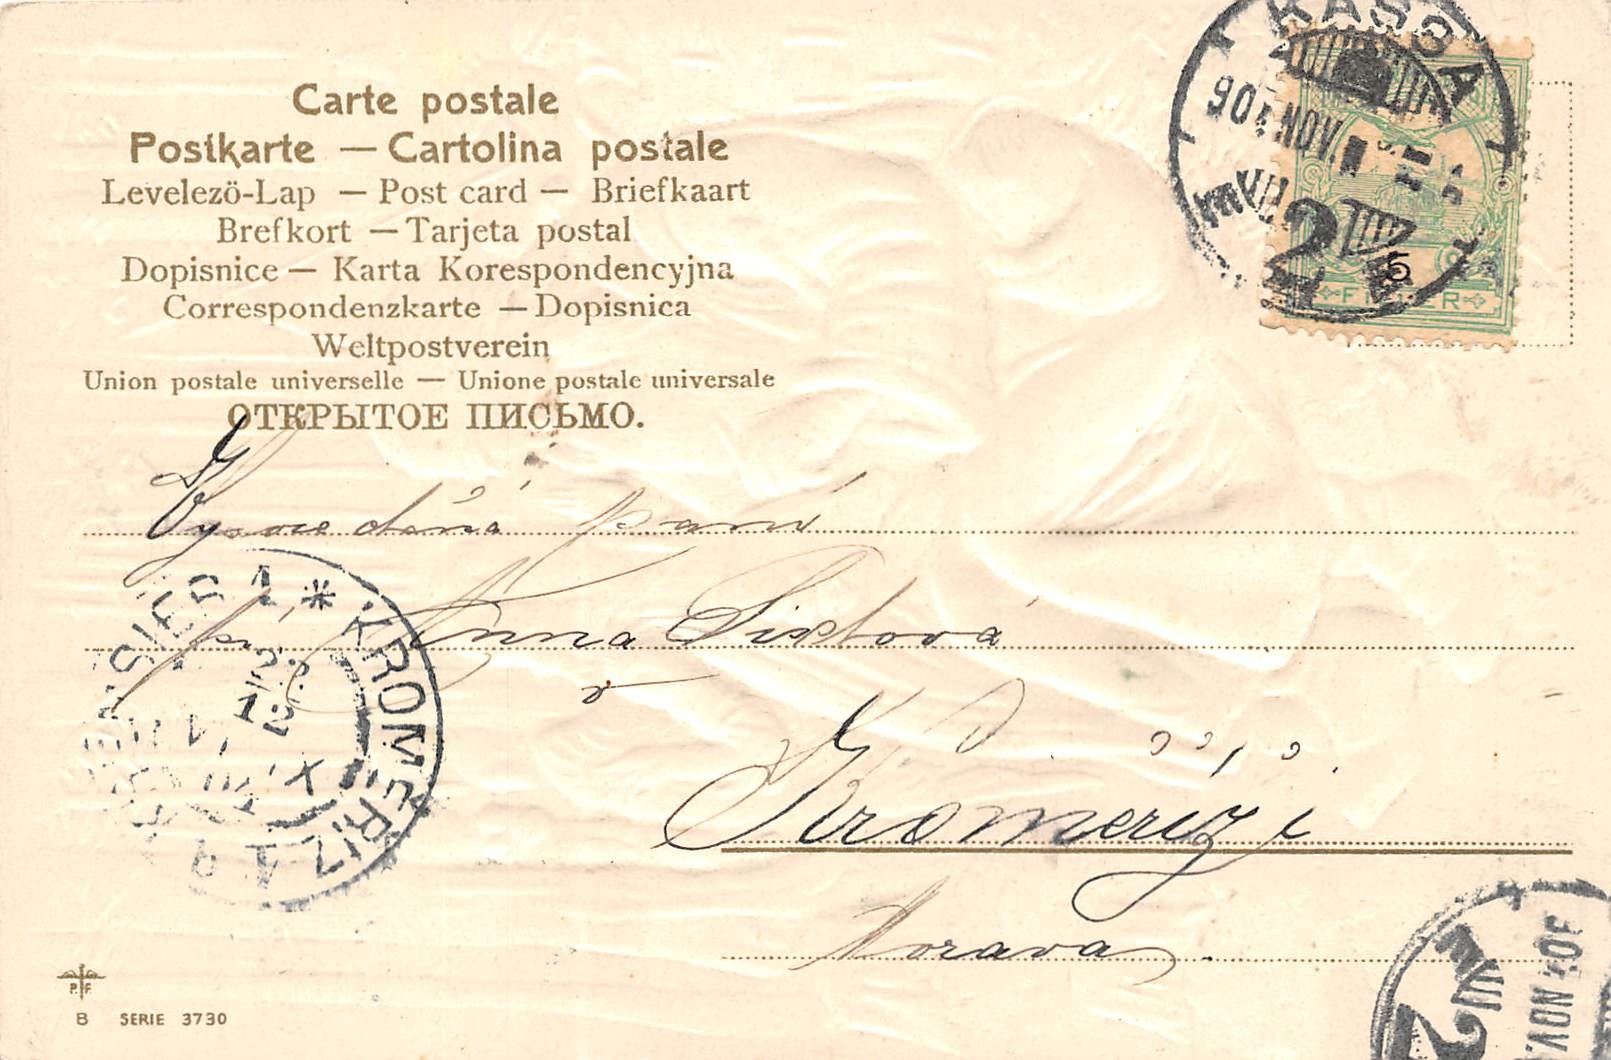 Carte postale
Postkarte — Cartolina postale
Levelezö-Lap — Post card — Briefkaart
Brefkort — Tarjeta postal
Dopisnice — Karta Korespondencyjna
Correspondenzkarte — Dopisnica
Weltpostverein
Union postale universelle — Unione postale universale
ОТКРЫТОЕ ПИСЬМО.
KASSA
906 NOV.
2
5
FILLER
Vysoce ctěná paní
pí Anna Sixtová
v
Kroměříži
Morava.
KREMSIER 1 * KROMĚŘÍŽ 1
12
X
P.F.
B SERIE 3730
NOV.
2